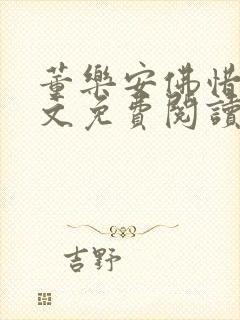 董樂安佛惜
文免費閱讀
吉野